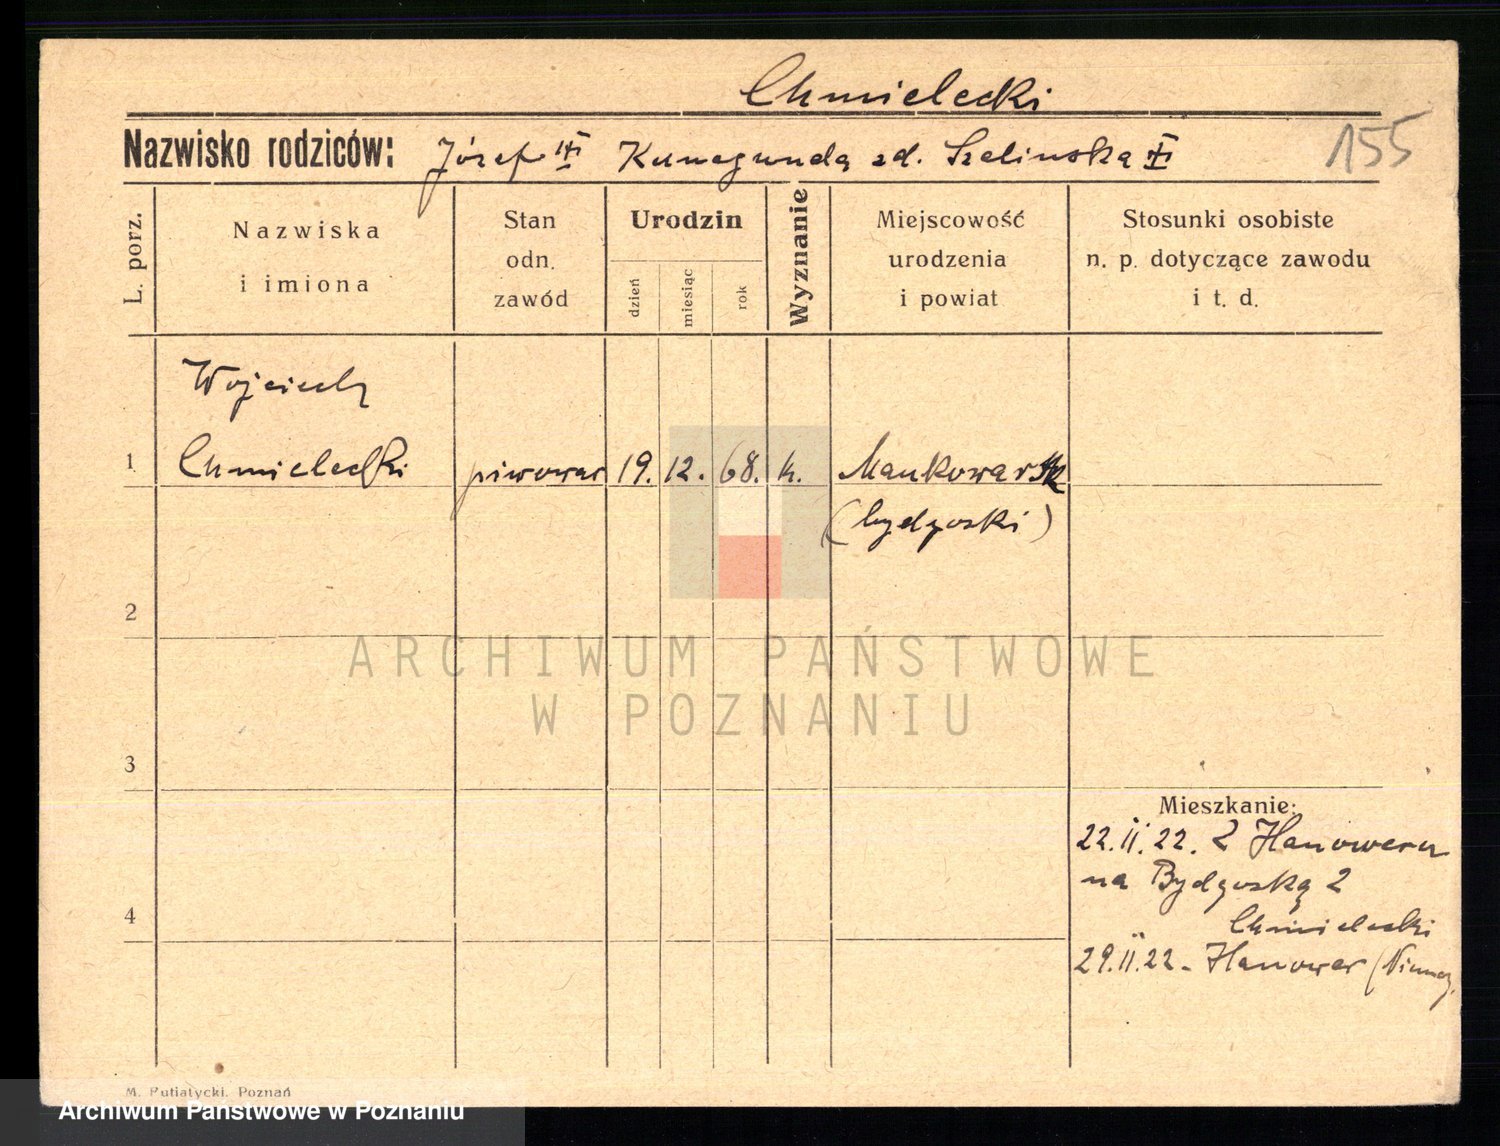 Chmielecki
Nazwisko rodziców: Józef Kunegunda zd. Szelinska
155
L. porz.
Nazwiska
i imiona
Stan
odn.
zawód
Urodzin
dzień
miesiąc
rok
Wyznanie
Miejscowość
urodzenia
i powiat
Stosunki osobiste
n. p. dotyczące zawodu
i t. d.
Wojciech
1 Chmielecki piwowar 19. 12. 68. k.
(bydgoski)
2
ARCHIWUM PAŃSTWOWE
W POZNANIU
3
Mieszkanie:
22.II.22. Z Hanoweru
na Bydgoską 2
4
Chmielecki
29.II.22 - Hanower (Niemcy
M. Putiatycki. Poznań
Archiwum Państwowe w Poznaniu